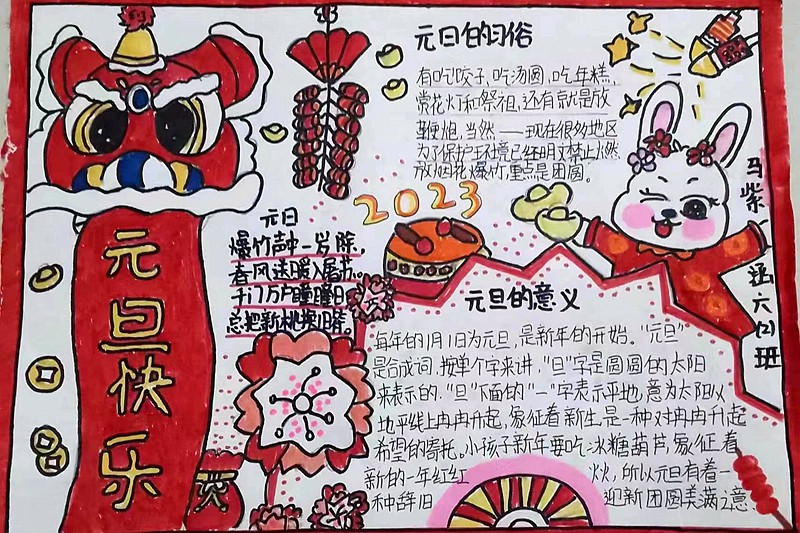 元旦快乐
元旦的习俗
有吃饺子,吃汤圆,吃年糕,
赏花灯和祭祖,还有就是放
鞭炮,当然——现在很多地区
为了保护环境已经明文禁止燃
放烟花爆竹,重点是团圆。
2023
元日
爆竹声中一岁除,
春风送暖入屠苏。
千门万户曈曈日,
总把新桃换旧符。
元旦的意义
每年的1月1日为元旦,是新年的开始。“元旦”
是合成词,按单个字来讲,“旦”字是圆圆的太阳
来表示的,“旦”下面的“一”字表示平地,意为太阳从
地平线上冉冉升起,象征着新生,是一种对冉冉升起
希望的寄托。小孩子新年要吃冰糖葫芦,象征着
新的一年红红火火,所以元旦有着一
种辞旧迎新团圆美满之意。
马紫涵六(2)班